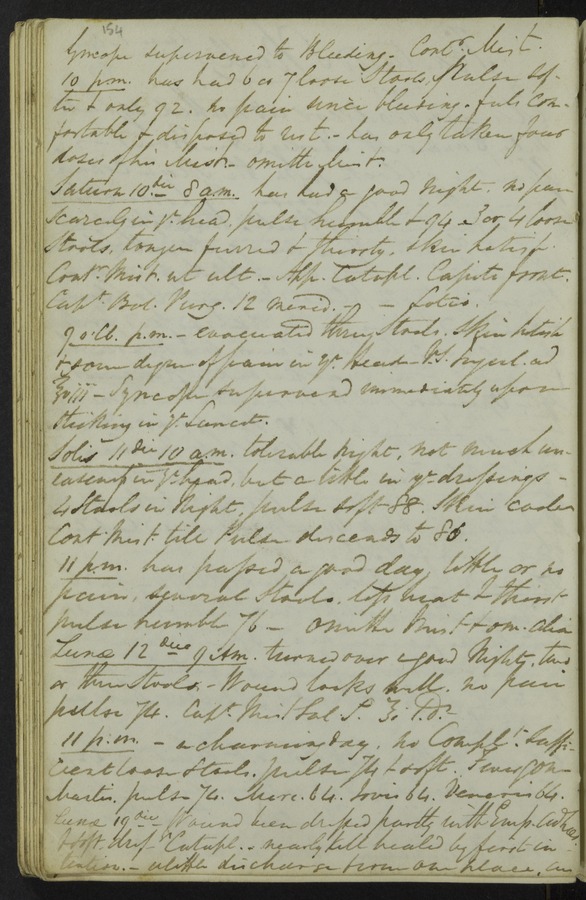 154
Syncope supervened to Bleeding - Contr. Mist.
10 p.m. has had 6 or 7 loose Stools, Pulse sof-
ter & only 92. no pain since bleeding. feels com-
fortable & disposed to rest. - has only taken four
doses of his Mist. - omitte hist.
Saturn 10 die 8 a.m. has had a good Night. no pain
scarcely in ye. head, pulse humble & 94 - 3 or 4 loose
Stools, tongue furred & thirsty, skin hotish.
Contr. Mist. ut ult. - App. Catapl. Capiti front.
Capt. Bol. Purg. 12 merid. - Lotio.
9 o.Cl. p.m. - evacuated three Stools. Skin hotish
& some degree of pain in ye. Head - V.S. Jugul. ad
℥viii - Syncope supervened immediately upon
Sticking in ye Lancet.
Solis 11 die 10 a.m. tolerable Night, not much un-
easiness in ye head, but a little in ye dressings -
4 Stools in Night, pulse soft 88. Skin cooler
Cont Mist. till Pulse descends to 80.
11 p.m. has passed a good day, little or no
pain, several Stools, less heat & thirst
pulse humble 76 - omitte Mist. & om. alia
Lunæ 12 die 9 A.m. turned over a good Night, two
or three Stools, - Wound looks well. no pain
pulse 74. Capt. Mist Sal. T.D.
11 p.m. - a charming day, no Complt. Suffi-
cient loose Stools, pulse 74 & soft
Martis, pulse 72. Merc. 64. Jovis 64. Veneris 64.
Lunæ 19 die Wound been dressed partly with Emp.
& soft dress Catapl. - nearly all healed by first in
tention. - a little discharge from one place, an